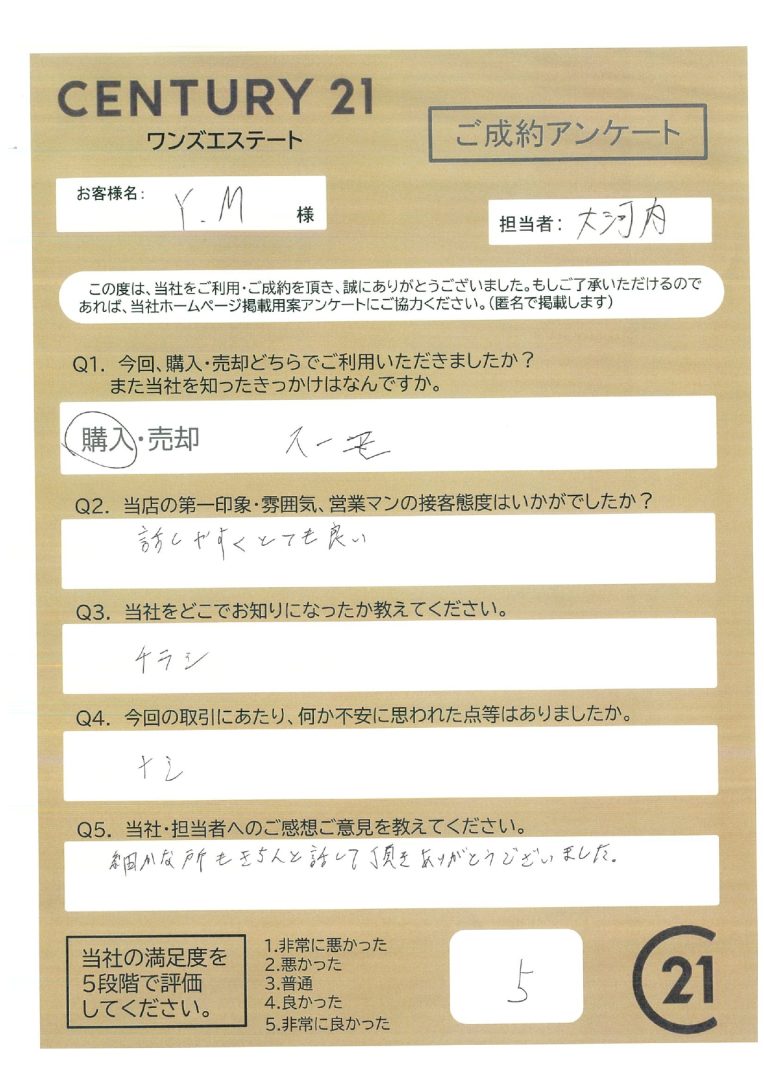 CENTURY 21
ワンズエステート
ご成約アンケート
お客様名: Y.M 様
担当者: 大河内
この度は、当社をご利用・ご成約を頂き、誠にありがとうございました。もしご了承いただけるので
あれば、当社ホームページ掲載用案アンケートにご協力ください。(匿名で掲載します)
Q1. 今回、購入・売却どちらでご利用いただきましたか?
また当社を知ったきっかけはなんですか。
購入・売却 スーモ
Q2. 当店の第一印象・雰囲気、営業マンの接客態度はいかがでしたか?
話しやすくとても良い
Q3. 当社をどこでお知りになったか教えてください。
チラシ
Q4. 今回の取引にあたり、何か不安に思われた点等はありましたか。
ナシ
Q5. 当社・担当者へのご感想ご意見を教えてください。
細かな所もきちんと話して頂きありがとうございました。
当社の満足度を
5段階で評価
してください。
1.非常に悪かった
2.悪かった
3.普通
4.良かった
5.非常に良かった
5
C21